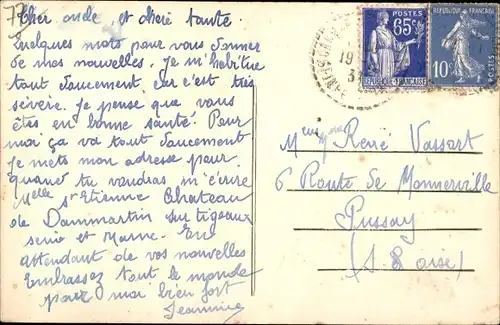 77
Cher oncle, et chère tante.
Quelques mots pour vous donner
de mes nouvelles. Je m'habitue
tout doucement car c'est très
sévère. Je pense que vous
êtes en bonne santé. Pour
moi ça va tout doucement
Je mets mon adresse pour
quand tu voudras m'écrire
Melle St Etienne Chateau
de Dammartin sur tigeaux
seine et Marne. En
attendant de vos nouvelles
Embrassez tout le monde
pour moi bien fort
Jeannine
POSTES
65c
REPUBLIQUE FRANÇAISE
10c
POSTES
19
3
René Vassort
6 Route de Monnerville
Pussay
(S. & Oise)